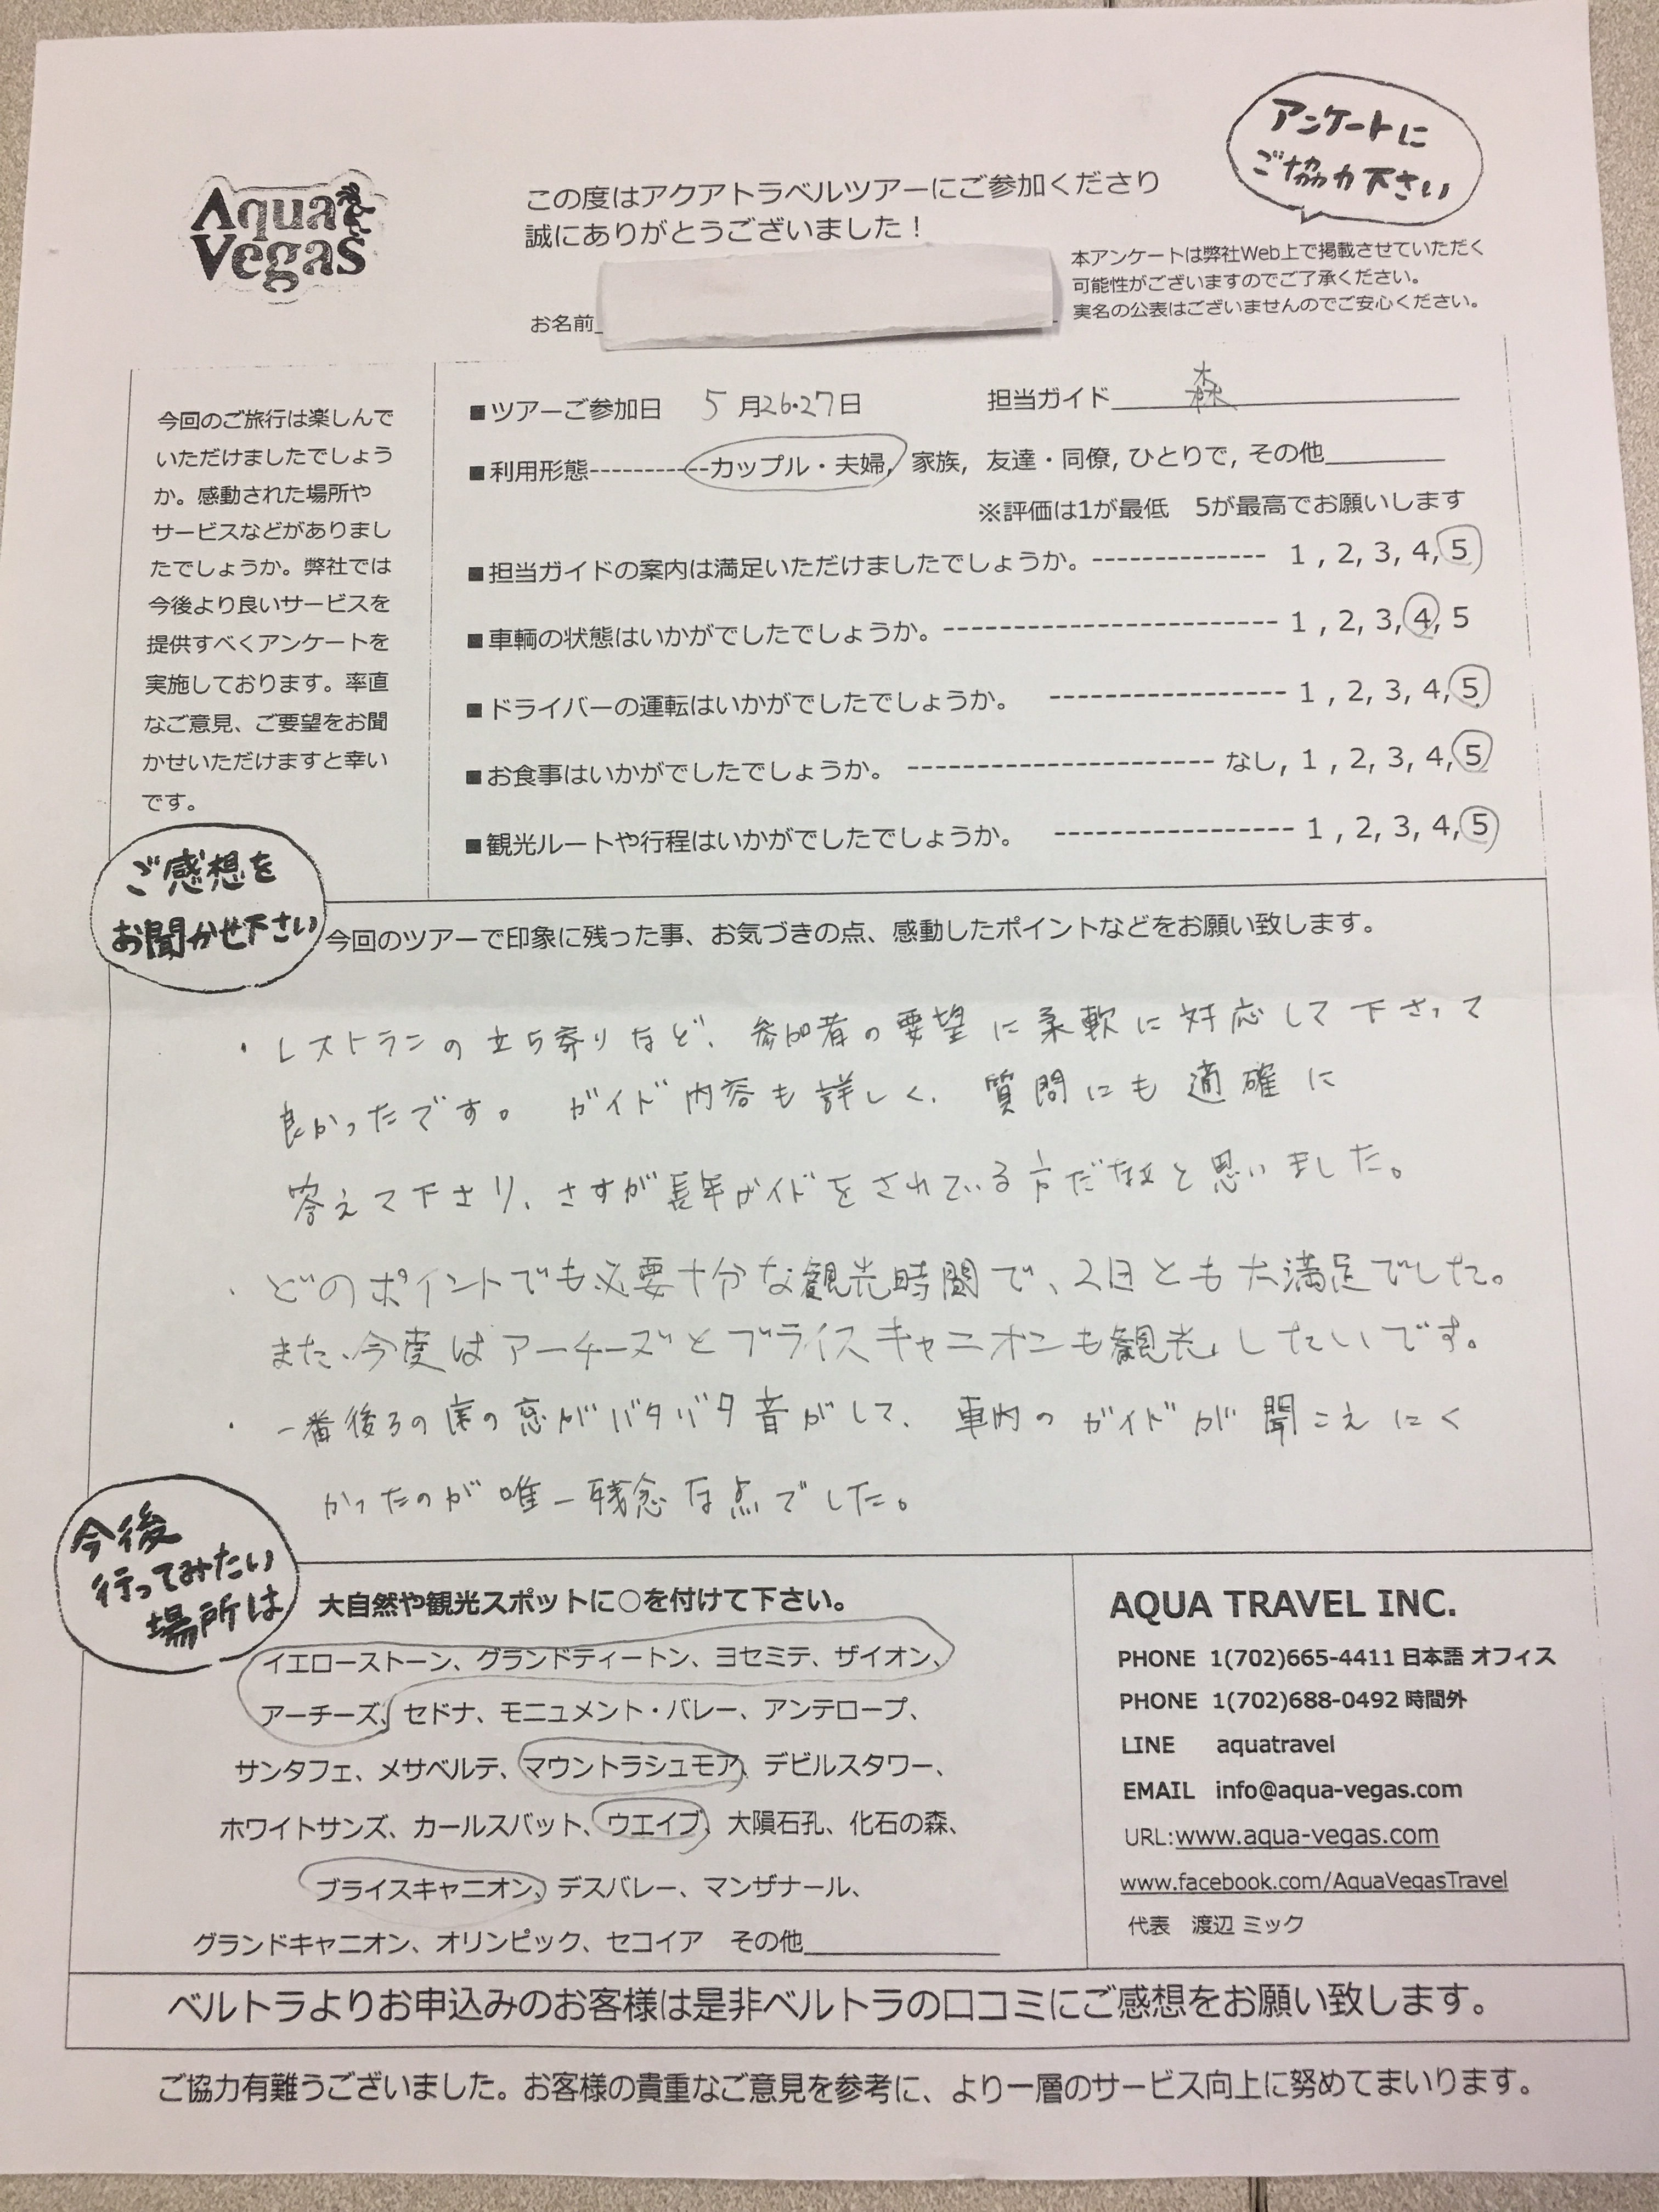 アンケートに
ご協力下さい
Aqua
Vegas
この度はアクアトラベルツアーにご参加くださり
誠にありがとうございました！
本アンケートは弊社Web上で掲載させていただく
可能性がございますのでご了承ください。
実名の公表はございませんのでご安心ください。
お名前
今回のご旅行は楽しんで
いただけましたでしょう
か。感動された場所や
サービスなどがありまし
たでしょうか。弊社では
今後より良いサービスを
提供すべくアンケートを
実施しております。率直
なご意見、ご要望をお聞
かせいただけますと幸い
です。
■ツアーご参加日 5月26・27日 担当ガイド 森
■利用形態-----------カップル・夫婦, 家族, 友達・同僚, ひとりで, その他________
※評価は1が最低 5が最高でお願いします
■担当ガイドの案内は満足いただけましたでしょうか。-------------- 1 , 2, 3, 4, 5
■車輌の状態はいかがでしたでしょうか。----------------------- 1 , 2, 3, 4, 5
■ドライバーの運転はいかがでしたでしょうか。 ----------------- 1 , 2, 3, 4, 5
■お食事はいかがでしたでしょうか。 --------------------- なし, 1 , 2, 3, 4, 5
■観光ルートや行程はいかがでしたでしょうか。 ----------------- 1 , 2, 3, 4, 5
ご感想を
お聞かせ下さい
今回のツアーで印象に残った事、お気づきの点、感動したポイントなどをお願い致します。
・レストランの立ち寄りなど、参加者の要望に柔軟に対応して下さって
良かったです。ガイド内容も詳しく、質問にも適確に
答えて下さり、さすが長年ガイドをされている方だなぁと思いました。
・どのポイントでも必要十分な観光時間で、2日とも大満足でした。
また、今度はアーチーズとブライスキャニオンも観光したいです。
・一番後ろの席の窓がバタバタ音がして、車内のガイドが聞こえにく
かったのが唯一残念な点でした。
今後
行ってみたい
場所は
大自然や観光スポットに○を付けて下さい。
イエローストーン、グランドティートン、ヨセミテ、ザイオン、
アーチーズ、セドナ、モニュメント・バレー、アンテロープ、
サンタフェ、メサベルデ、マウントラシュモア、デビルスタワー、
ホワイトサンズ、カールスバット、ウエイブ、大隕石孔、化石の森、
ブライスキャニオン、デスバレー、マンザナール、
グランドキャニオン、オリンピック、セコイア その他______________
AQUA TRAVEL INC.
PHONE 1(702)665-4411 日本語 オフィス
PHONE 1(702)688-0492 時間外
LINE aquatravel
EMAIL info@aqua-vegas.com
URL:www.aqua-vegas.com
www.facebook.com/AquaVegasTravel
代表 渡辺 ミック
ベルトラよりお申込みのお客様は是非ベルトラの口コミにご感想をお願い致します。
ご協力有難うございました。お客様の貴重なご意見を参考に、より一層のサービス向上に努めてまいります。